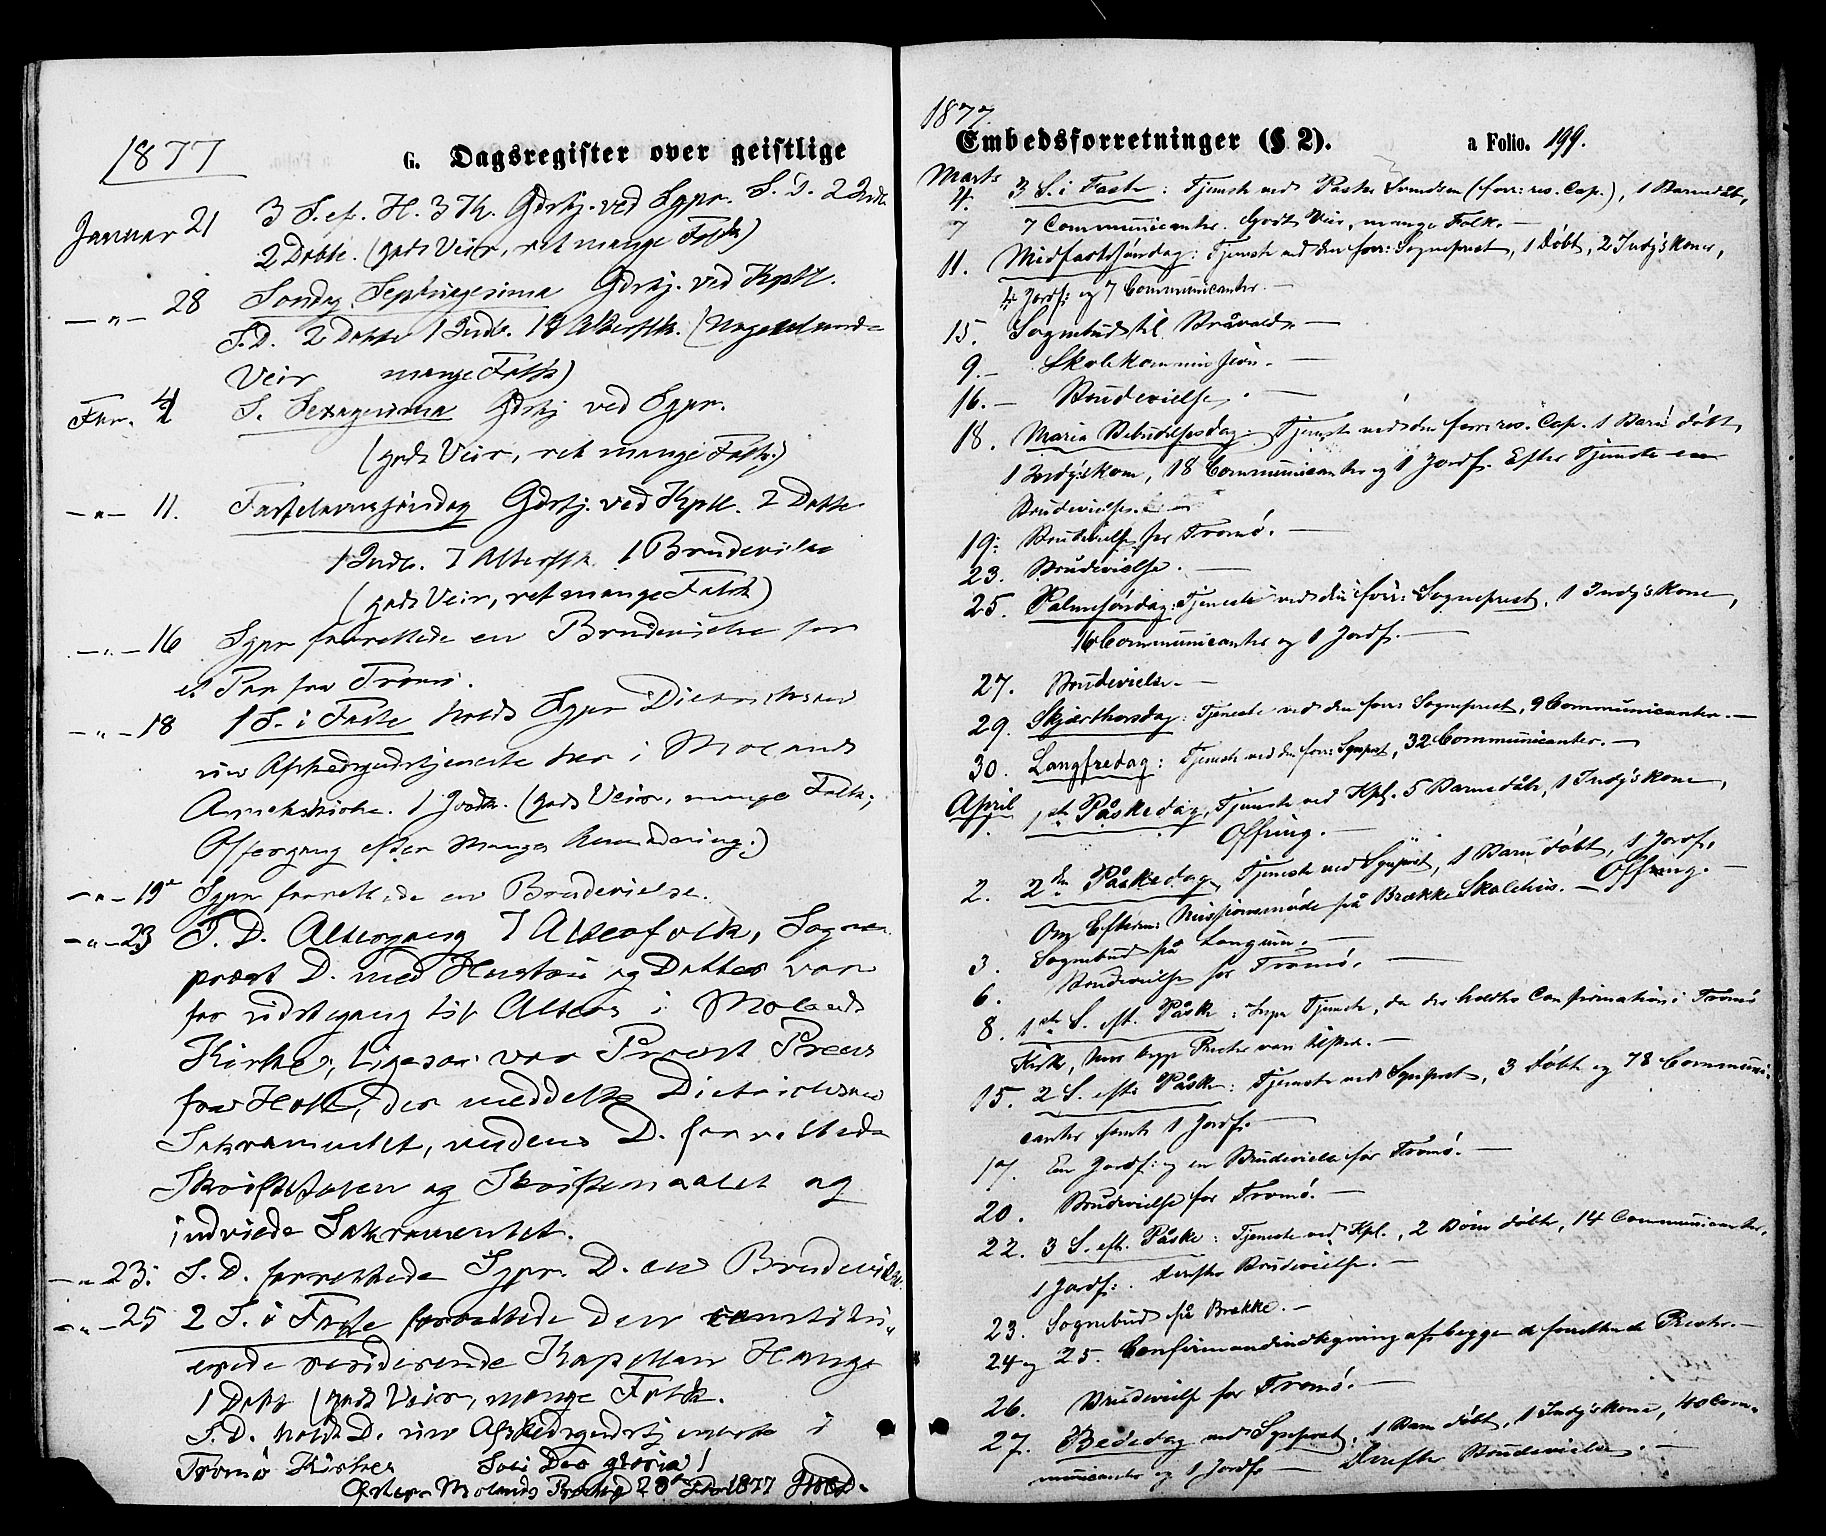 1877
G. Dagsregister over geistlige
Januar 21 3 S. ef. H. 3 K. Gdstj. ved Sgpr. S. D. 2 Indl.
2 Døbte. (godt Veir, ret mange Folk)
— " — 28 Søndag Septuagesima Gdstj. ved Kpll.
S. D. 2 Døbte 1 Indl. 18 Altersfk.
Veir mange Folk)
Febr. 4 S. Sexagesima Gdstj ved Sgpr.
(godt Veir, ret mange Folk.)
— " — 11. Fastelavnssøndag Gdstj. ved Kpll. 2 Døbte
1 Indl. 7 Altersfk. 1 Brudevielse
(godt Veir, ret mange Folk)
— " — 16 Sgpr forrettede en Brudevielse for
et Par fra Tromø.
— " — 18 1 S. i Faste holdt Sgpr Dietrichson
sin Afskedsgudstjeneste her i Molands
Annexkirke. 1 Jordf. (godt Veir, mange Folk;
Offergang efter Manges Anmodning.)
— " — 19de Sgpr forrettede en Brudevielse.
— " — 23 S. D. Altergang 7 Altersfolk, Sogne-
præst D. med Hustru og Datter var
for sidste gang til Alters i Molands
Kirke, ligesaa var Provst Preus
fra Holt, der meddelte Dietrichson
Sakramentet, medens D. forrettede
Skriftetalen og Skriftemaalet og
indviede Sakramentet.
— " 23. S. D. forrettede Sgpr. D. en Brudevielse.
— " — 25 2 S. i Faste forrettede den constitu-
erede residerende Kapellan Hauge
1 Døbt (godt Veir, mange Folk.
S. D. holdt D. sin Afskedsgudstjeneste i
Tromø Kirke Soli Deo gloria!
Østere Molands Prstgd 28de Febr 1877
1877.
Embedsforretninger (§ 2). a Folio. 199.
Marts
4. 3 S. i Faste: Tjeneste ved Pastor Svendsen (forr: res. Cap.), 1 Barnedåb,
7 Communicanter. Godt Veir, mange Folk. —
11. Midfastesøndag: Tjeneste ved den forr: Sogneprest, 1 Døbt, 2 Indg.skoner,
4 Jordf: og 7 Communicanter. —
15. Sognebud til —
9. — Skolekommission. —
16. — Brudevielse. —
18. Maria Bebudelsesdag: Tjeneste ved den forr res. Cap. 1 Barn døbt,
1 Indg.skone, 18 Communicanter og 1 Jordf. Efter Tjeneste en
Brudevielse. —
19. Brudevielse for Tromø. —
23. Brudevielse. —
25. Palmesøndag: Tjeneste ved den forr: Sogneprest, 1 Indg.skone,
16 Communicanter og 1 Jordf. —
27. Brudevielse. —
29. Skjærthorsdag: Tjeneste ved den forr: Sogneprest, 9 Communicanter. —
30. Langfredag: Tjeneste ved den forr: Sgnprest, 32 Communicanter. —
April
1. 1ste Påskedag, Tjeneste ved Kpl. 5 Barnedåb, 1 Indg.skone,
Offring. —
2. 2den Påskedag, Tjeneste ved Sgnprest, 1 Barn døbt, 1 Jordf,
Om Efterm: Missionsmøde på Brække Skolehus. — Offring. —
3. Sognebud på Longum. —
6. Brudevielse for Tromø. —
8. 1ste S. eft. Påske: Ingen Tjeneste, da der holdtes Confirmation i Tromø
Kirke, hvor begge Prester vare tilstede. —
15. 2 S. efter Påske: Tjeneste ved Sgnprest, 3 døbte og 78 Communi-
canter samt 1 Jordf. —
17. En Jordf: og en Brudevielse for Tromø. —
20. Brudevielse for Tromø. —
22. 3 S. eft. Påske: Tjeneste ved Kpl., 2 Børn døbte, 14 Communicanter,
1 Jordf: Derefter Brudevielse. —
23. Sognebud på Brække. —
24 og 25. Confirmandindtegning af begge de forrettende Prester. —
26. Brudevielse for Tromø. —
27. Bededag ved Sgnprest, 1 Barn døbt, 1 Indg.skone, 40 Com-
municanter og 1 Jordf. — Derefter Brudevielse. —